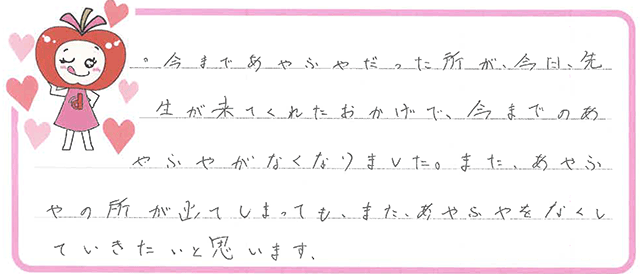 。今まであやふやだった所が、今日、先
生が来てくれたおかげで、今までのあ
やふやがなくなりました。また、あやふ
やの所が出てしまっても、また、あやふやをなくし
ていきたいと思います。
d